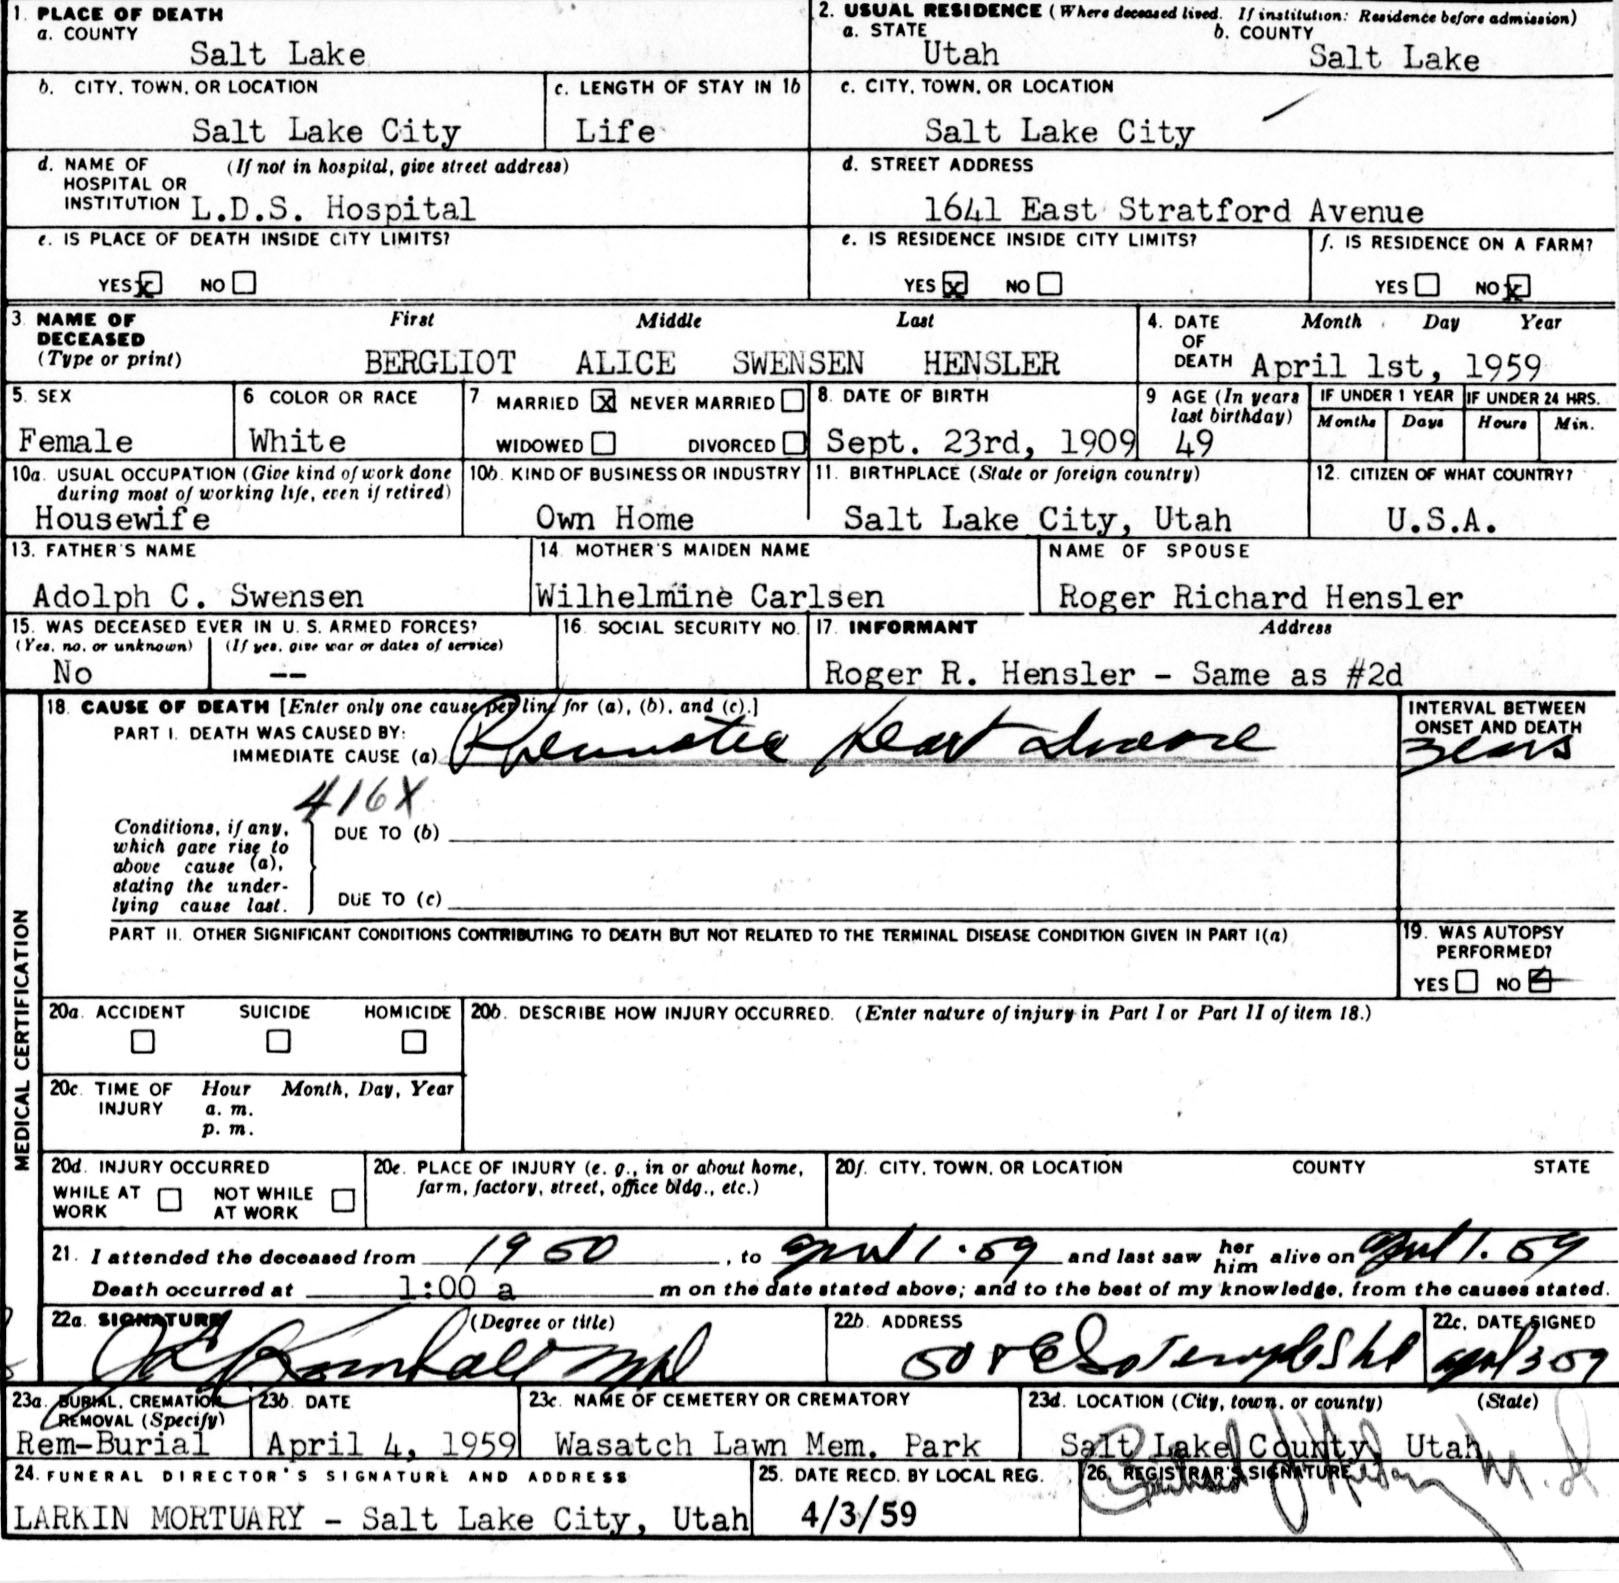 1. PLACE OF DEATH
a. COUNTY
Salt Lake
2. USUAL RESIDENCE (Where deceased lived. If institution: Residence before admission)
a. STATE b. COUNTY
Utah Salt Lake
b. CITY, TOWN, OR LOCATION
Salt Lake City
c. LENGTH OF STAY IN 1b
Life
c. CITY, TOWN, OR LOCATION
Salt Lake City
d. NAME OF (If not in hospital, give street address)
HOSPITAL OR
INSTITUTION L.D.S. Hospital
d. STREET ADDRESS
1641 East Stratford Avenue
e. IS PLACE OF DEATH INSIDE CITY LIMITS?
YES x NO
e. IS RESIDENCE INSIDE CITY LIMITS?
YES x NO
f. IS RESIDENCE ON A FARM?
YES NO x
3. NAME OF First Middle Last
DECEASED
(Type or print) BERGLIOT ALICE SWENSEN HENSLER
4. DATE Month Day Year
OF
DEATH April 1st, 1959
5. SEX
Female
6 COLOR OR RACE
White
7 MARRIED X NEVER MARRIED
WIDOWED DIVORCED
8. DATE OF BIRTH
Sept. 23rd, 1909
9 AGE (In years
last birthday)
49
IF UNDER 1 YEAR IF UNDER 24 HRS.
Months Days Hours Min.
10a. USUAL OCCUPATION (Give kind of work done
during most of working life, even if retired)
Housewife
10b. KIND OF BUSINESS OR INDUSTRY
Own Home
11. BIRTHPLACE (State or foreign country)
Salt Lake City, Utah
12. CITIZEN OF WHAT COUNTRY?
U.S.A.
13. FATHER'S NAME
Adolph C. Swensen
14. MOTHER'S MAIDEN NAME
Wilhelmine Carlsen
NAME OF SPOUSE
Roger Richard Hensler
15. WAS DECEASED EVER IN U. S. ARMED FORCES?
(Yes, no, or unknown) (If yes, give war or dates of service)
No --
16. SOCIAL SECURITY NO.
17. INFORMANT Address
Roger R. Hensler - Same as #2d
MEDICAL CERTIFICATION
18. CAUSE OF DEATH [Enter only one cause per line for (a), (b), and (c).]
PART I. DEATH WAS CAUSED BY:
IMMEDIATE CAUSE (a) Rheumatic heart disease
INTERVAL BETWEEN
ONSET AND DEATH
416X
Conditions, if any,
which gave rise to
above cause (a),
stating the under-
lying cause last.
DUE TO (b)
DUE TO (c)
PART II. OTHER SIGNIFICANT CONDITIONS CONTRIBUTING TO DEATH BUT NOT RELATED TO THE TERMINAL DISEASE CONDITION GIVEN IN PART I(a)
19. WAS AUTOPSY
PERFORMED?
YES NO
20a. ACCIDENT SUICIDE HOMICIDE
20b. DESCRIBE HOW INJURY OCCURRED. (Enter nature of injury in Part I or Part II of item 18.)
20c. TIME OF Hour Month, Day, Year
INJURY a. m.
p. m.
20d. INJURY OCCURRED
WHILE AT NOT WHILE
WORK AT WORK
20e. PLACE OF INJURY (e. g., in or about home,
farm, factory, street, office bldg., etc.)
20f. CITY, TOWN, OR LOCATION COUNTY STATE
21. I attended the deceased from 1950, to april 1 . 59 and last saw her him alive on april 1. 59
Death occurred at 1:00 a m on the date stated above; and to the best of my knowledge, from the causes stated.
22a. SIGNATURE (Degree or title)
MD
22b. ADDRESS
So Temple
22c. DATE SIGNED
april 3 59
23a. BURIAL, CREMATION,
REMOVAL (Specify)
Rem-Burial
23b. DATE
April 4, 1959
23c. NAME OF CEMETERY OR CREMATORY
Wasatch Lawn Mem. Park
23d. LOCATION (City, town, or county) (State)
Salt Lake County, Utah
24. FUNERAL DIRECTOR'S SIGNATURE AND ADDRESS
LARKIN MORTUARY - Salt Lake City, Utah
25. DATE RECD. BY LOCAL REG.
4/3/59
26. REGISTRAR'S SIGNATURE
M.D